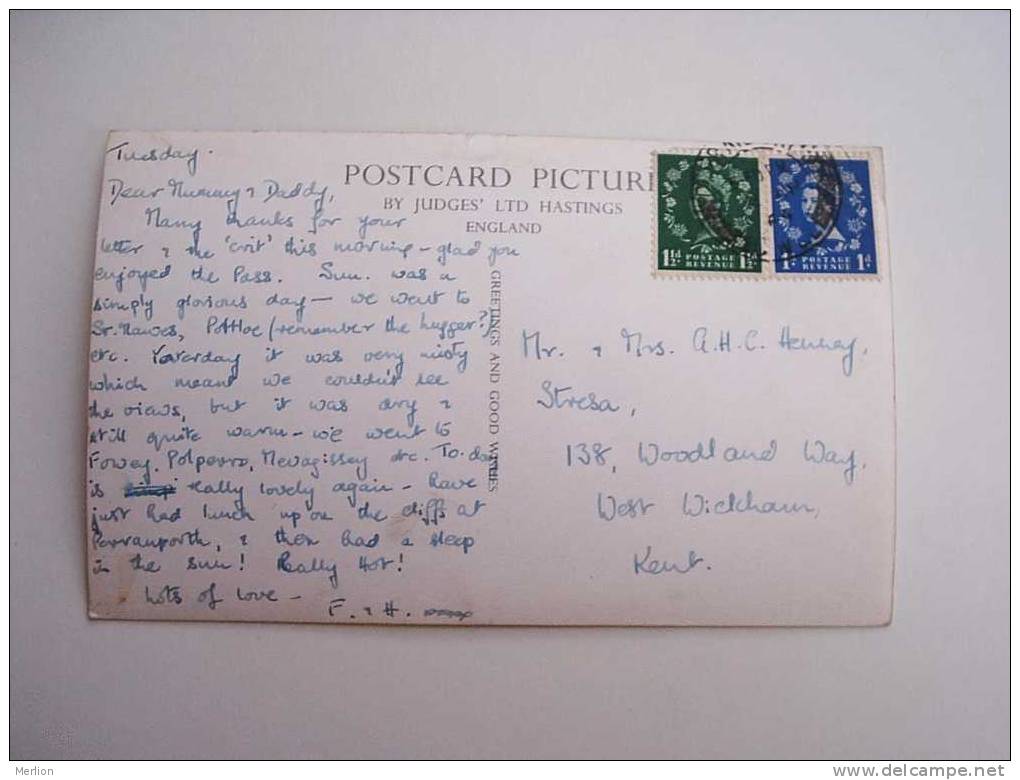 Tuesday.
Dear Mummy & Daddy,
Many thanks for your
letter & the 'crit' this morning - glad you
enjoyed the Pass. Sun. was a
simply glorious day - we went to
St. Mawes, Portloe (remember the hugger?)
etc. Yesterday it was very misty
which meant we couldn't see
the views, but it was dry &
still quite warm - we went to
Fowey, Polperro, Mevagissey etc. To-day
is really lovely again - have
just had lunch up on the cliffs at
Perranporth, & then had a sleep
in the sun! Really Hot!
Lots of love -
F. & H.
POSTCARD PICTUR
BY JUDGES' LTD HASTINGS
ENGLAND
GREETINGS AND GOOD WISHES
1½d. POSTAGE REVENUE 1½d.
1d. POSTAGE REVENUE 1d.
Mr. & Mrs. A.H.C. Henney,
Stresa,
138, Woodland Way,
West Wickham,
Kent.
Merlion
delcampe.net